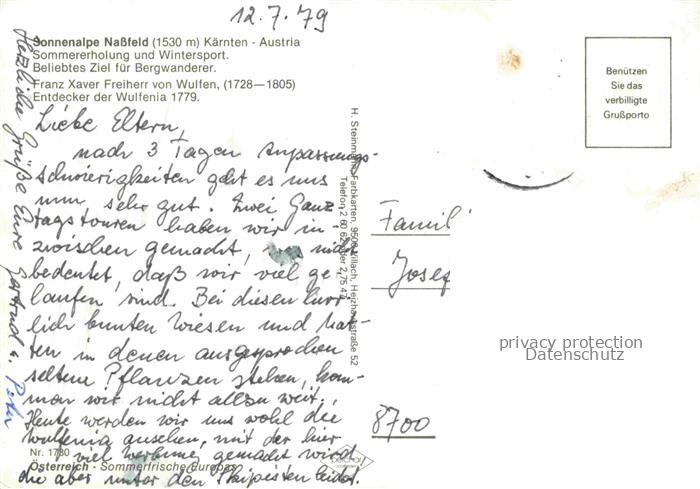 12.7.79
Sonnenalpe Naßfeld (1530 m) Kärnten - Austria
Sommererholung und Wintersport.
Beliebtes Ziel für Bergwanderer.
Franz Xaver Freiherr von Wulfen, (1728—1805)
Entdecker der Wulfenia 1779.
Liebe Eltern,
nach 3 Tagen Anpassungs-
schwierigkeiten geht es uns
nun, sehr gut. Zwei Ganz-
tagstouren haben wir in-
zwischen gemacht, was nicht
bedeutet, daß wir viel ge-
laufen sind. Bei diesen herr-
lich bunten Wiesen und Mat-
ten in denen ausgesprochen
seltene Pflanzen stehen, kom-
men wir nicht allzu weit.
Heute werden wir uns wohl die
Wulfenia ansehen, mit der hier
viel Werbung gemacht wird
die aber unter den Skipisten leidet.
Herzliche Grüße Eure Gertrud u. Peter
Nr. 1780
Österreich - Sommerfrische Europas
H. Steinmann, Farbkarten, 9500 Villach, Heizhausstraße 52
Benützen
Sie das
verbilligte
Grußporto
Famil
Josef
8700
privacy protection
Datenschutz